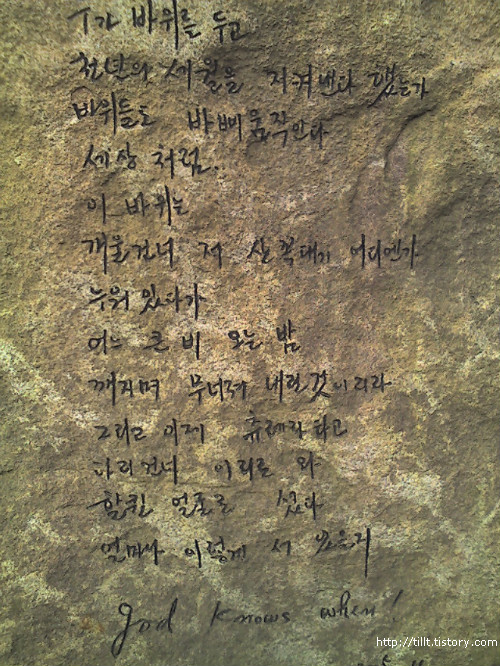 가 바위를 두고
천년의 세월을 지켜낸다 했는가
바위들도 바삐 움직인다
세상 처럼..
이 바위는
개울건너 저 산꼭대기 어디엔가
누워 있다가
어느 큰 비 오는 밤
깨지며 무너져 내린 것이리라
그리고 이제 휴레락 타고
다리건너 이리로 와
할퀸 얼굴로 섰다
얼마나 이렇게 서 있을지
god knows when!
http://tillt.tistory.com